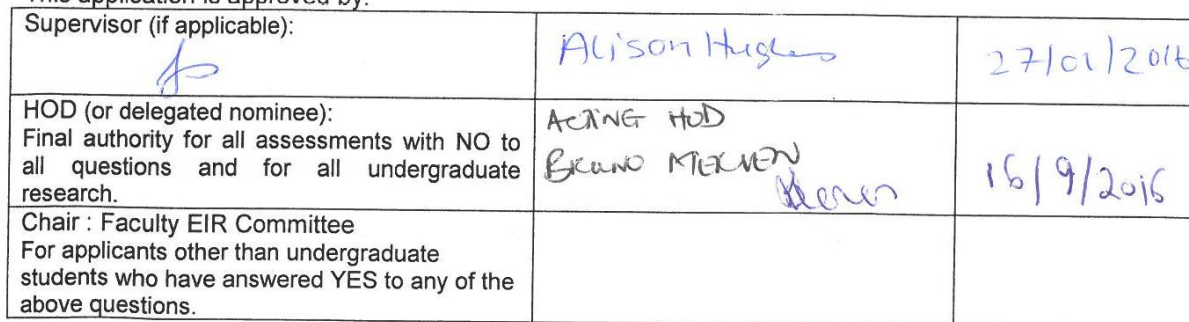 This application is approved by:
Supervisor (if applicable):
Alison Hughes
27/01/2016
HOD (or delegated nominee):
Final authority for all assessments with NO to
all questions and for all undergraduate
research.
ACTING HOD
BRUNO MERVEN
16/9/2016
Chair : Faculty EIR Committee
For applicants other than undergraduate
students who have answered YES to any of the
above questions.